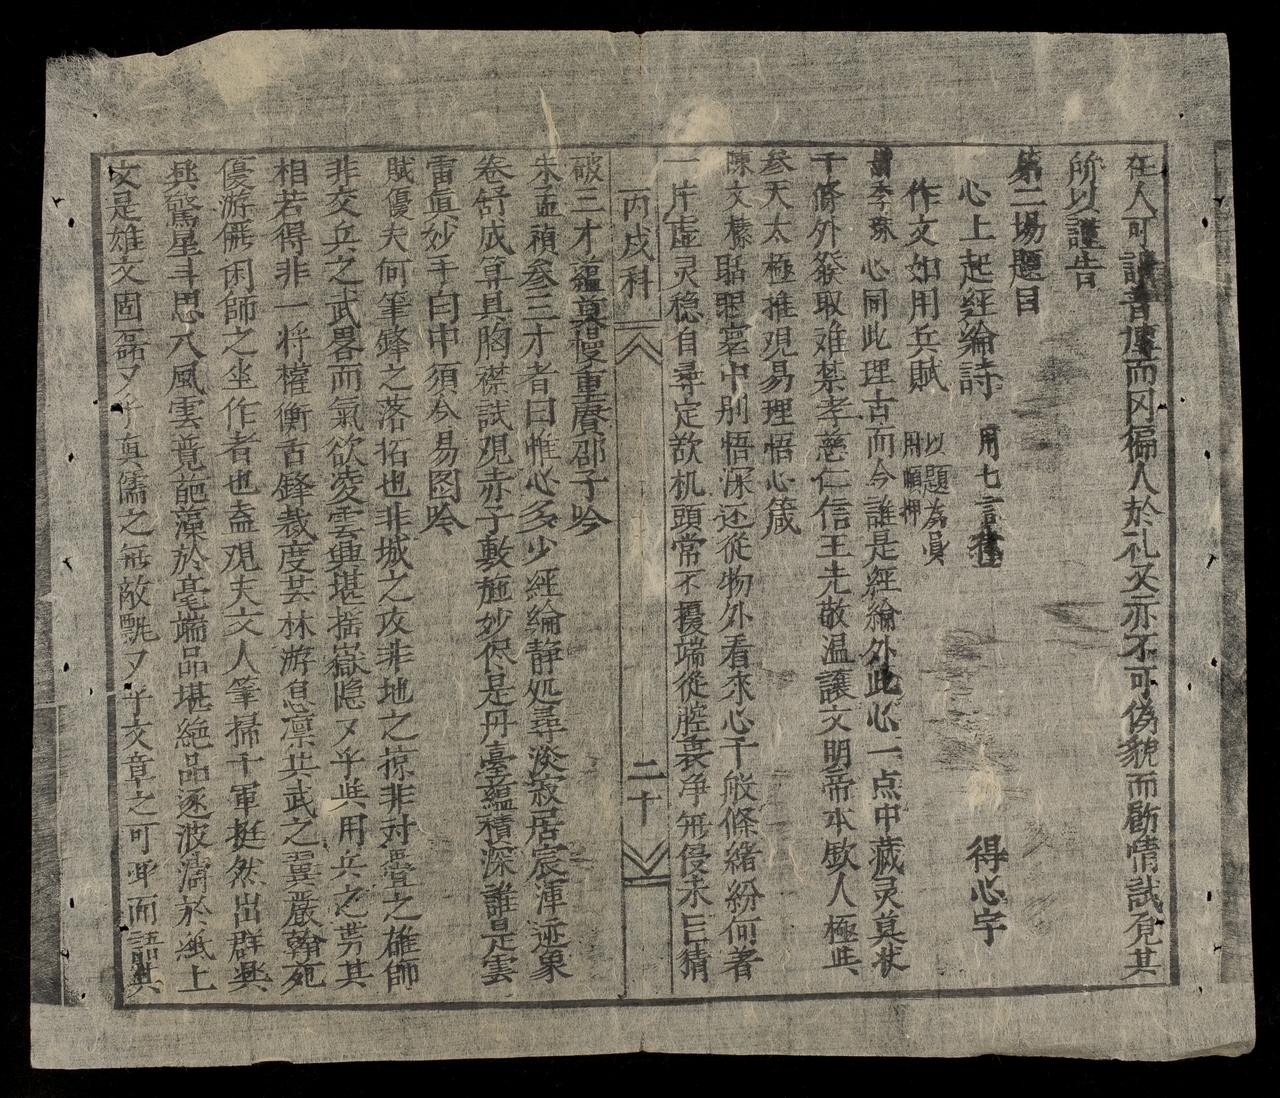 在人可謂音應而冈徧人於礼又亦不可偽貌而餙情試覓其
所以謹告
第二場題目
心上起經綸詩 用七言律 得心字
作文如用兵賦 以題為員 用順押
李琢 心同此理古而今誰是經綸外此心一点中藏灵莫状
千條外發取难禁孝慈仁信王尤敬温讓文明帝本欽人極共
叄天太極推观易理悟心箴
陳文榛 聒聒寰中别悟深还從物外看來心千般條緒紛何著
一片虚灵稳自尋定欲机頭常不擾端從腔裹净無侵未曰猜
破三才蘊莫慢重賡邵子吟
丙戌科 二十
朱孟穎 叄三才者曰惟心多少經綸静処尋淡寂居宸渾迹象
卷舒成算具胸襟試观赤子敷施妙俱是丹臺蘊積深誰是雲
雷眞妙手曰中須今易图吟
賦優夫何筆鋒之落拓也非城之攻非地之掠非对壘之雄師
非交兵之武畧而氣欲凌雲興堪搖嶽隐〻乎與用兵之势其
相若得非一将權衡舌鋒裁度芸林游息凛其武之翼嚴翰苑
優游儼用師之坐作者也盍观夫文人筆掃千軍挺然出群興
與驚星斗思入風雲竟葩藻於毫端品堪絶品逐波濤於紙上
文是雄文固磊〻乎真儒之無敵飄〻乎文章之可與而語其